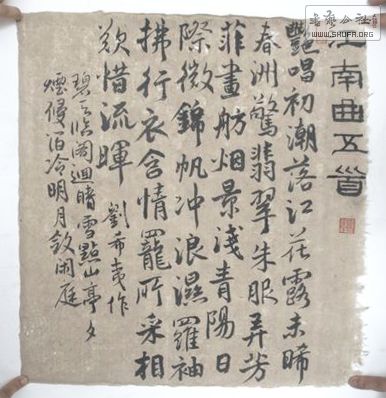 江南曲五首
艷唱初潮落江花露未晞
春洲驚翡翠朱服弄芳
菲畫舫烟景淺青陽日
際微錦帆冲浪濕羅袖
拂行衣含情罷所采相
歎惜流暉
劉希夷作
碧天臨閣迴晴雪點山亭夕
煙侵泊冷明月斂閑庭
书法公社
WWW.SHUFA.ORG